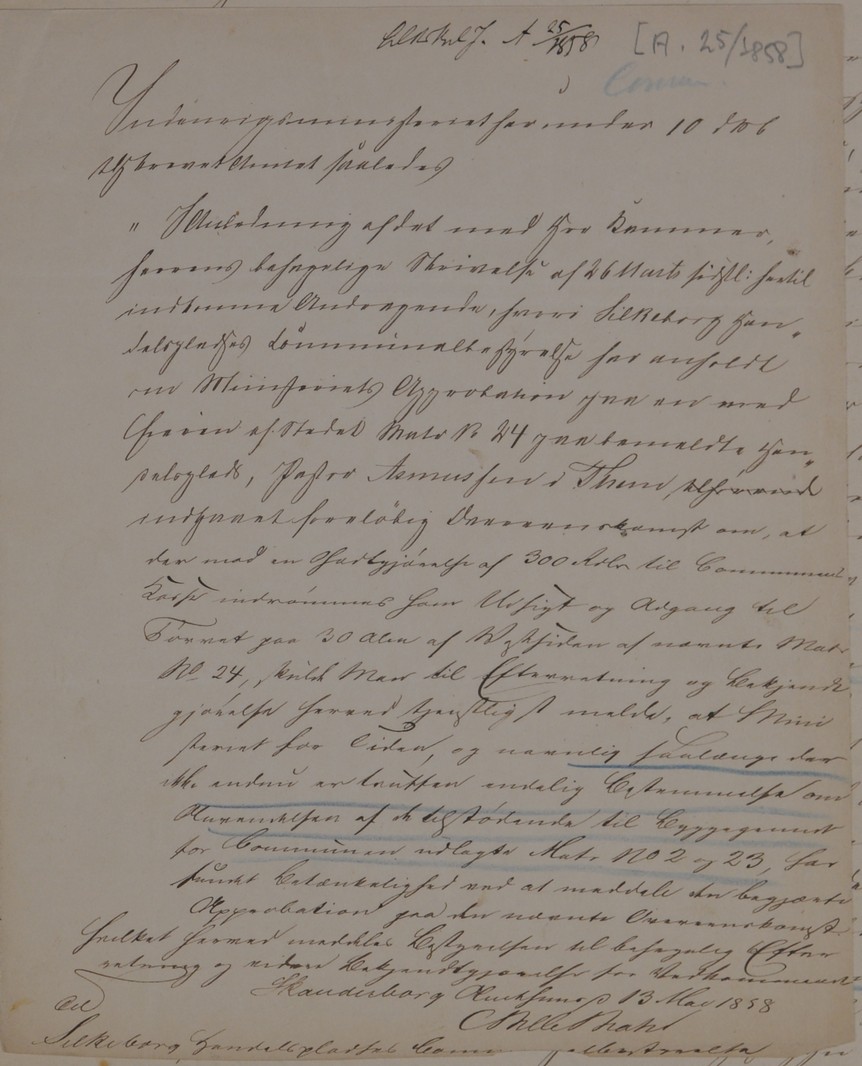 A 25/1858 [A. 25/1858]
Indenrigsministeriet har under 10 ds
tilskrevet Amtet saaledes
"I Anledning af det med Hr Kammer,
herrens behagelige Skrivelse af 26 Marts sidstl: hertil
indkomne Andragende, hvori Silkeborg Han„
delsplads's Communalbestyrelse har anholdt
om Ministeriets Approbation paa en med
Eieren af Stedet Matr No 24 paa bemeldte Han„
delsplads, Pastor Asmussen i Them
indgaaet foreløbig Overeenskomst om, at
der mod en Godtgjørelse af 300 Rdlr til Communens
Kasse indrømmes ham Udsigt og Adgang til
Torvet paa 30 Alen af Vestsiden af nævnte Matr
No 24, skulde Man til Efterretning og Bekjendt
gjørelse herved tjenstligst melde, at Mini
steriet for Tiden, og navnlig saalænge der
ikke endnu er truffen endelig Bestemmelse om
Anvendelsen af de tilstødende til Byggegrunde
for Communen udlagte Matr No 2 og 23, har
fundet Betænkelighed ved at meddele den begjærte
Approbation paa den nævnte Overeenskomst.
hvilket herved meddeles Bestyrelsen til behagelig Efter
retning og videre Bekjendtgjørelse for Vedkommende
Skanderborg Amthuus, 13 Mai 1858
Til
Silkeborg Handelsplads's